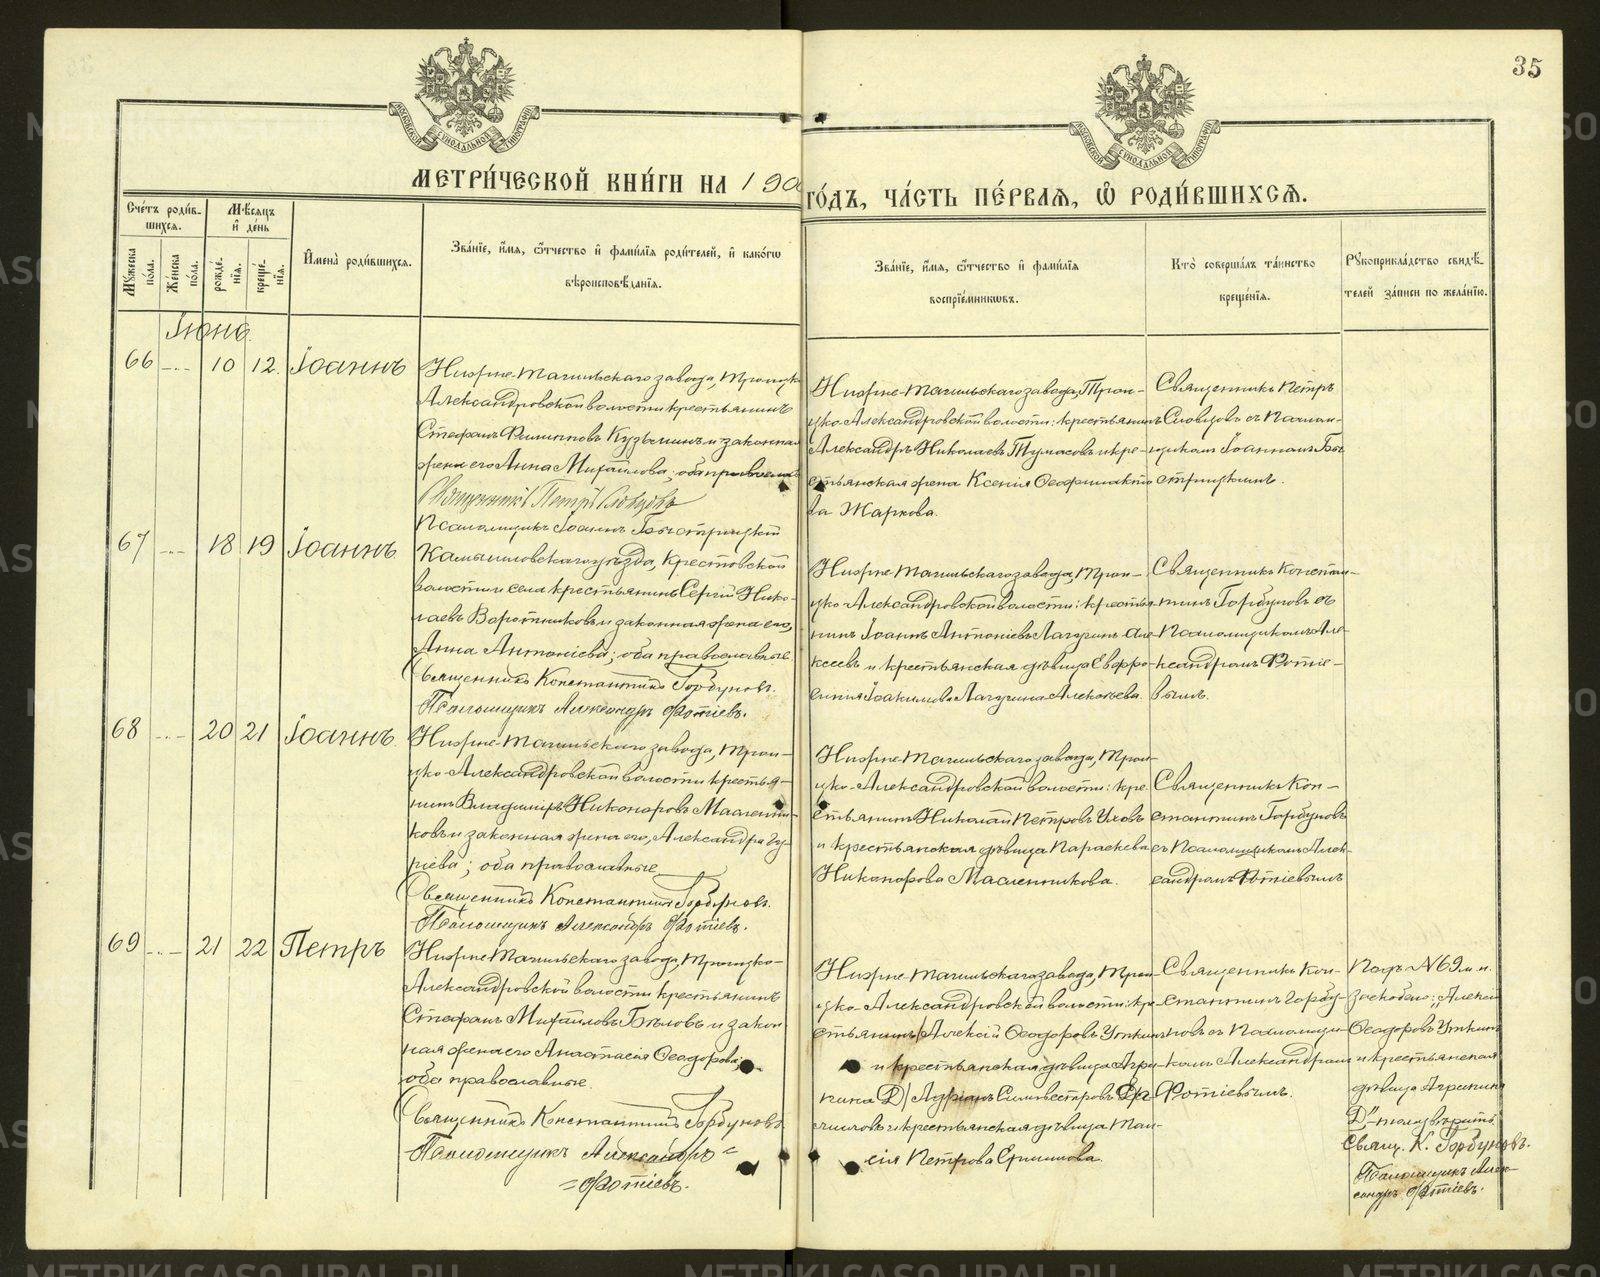 35
МОСКОВСКОЙ СѴНОДАЛЬНОЙ ТИПОГРАФІИ
МОСКОВСКОЙ СѴНОДАЛЬНОЙ ТИПОГРАФІИ
МЕТРИ́ЧЕСКОЙ КНИ́ГИ НА 190
ГО́ДЪ, ЧА́СТЬ ПЕ́РВАЯ, Ѡ҆ РОДИ́ВШИХСЯ.
Сче́тъ роди́в-
шихся.
Мѣ́сяцъ
и҆ де́нь
Мꙋ́жеска по́ла.
Же́нска по́ла.
рожде́-нїя.
креще́-нїя.
И҆мена̀ роди́вшихся.
Зва́нїе, и҆́мя, ѻ҆́тчество и҆ фами́лїя роди́телей, и҆ како́гѡ
вѣроисповѣ́данїя.
Зва́нїе, и҆́мя, ѻ҆́тчество и҆ фами́лїя
воспрїе́мникѡвъ.
Кто̀ соверша́лъ та́инство
креще́нїя.
Рꙋкоприкла́дство свидѣ́-
телей за́писи по жела́нїю.
Іюнь.
66 -..- 10 12. Іоаннъ
Нижне-Тагильскаго завода, Троицко
Александровской волости крестьянинъ
Стефанъ Филипповъ Кузьминъ и законная
жена его Анна Михаилова; оба православ
Священникъ Петръ Словцовъ
Псаломщикъ Іоаннъ Быстрицкій
Нижне-Тагильскаго завода, Трои-
цко-Александровской волости: крестьянинъ
Александръ Николаевъ Тумасовъ и кре-
стьянская жена Ксенія Феофилакто
ва Жаркова.
Священникъ Петръ
Словцовъ съ Псалом-
щикомъ Іоанномъ Бы
стрицкимъ.
67 -..- 18 19 Іоаннъ
Камышловскаго уѣзда, Крестовской
волости и села крестьянинъ Сергій Нико-
лаевъ Воротниковъ и законная жена его,
Анна Антоніева; оба православные.
Священникъ Константинъ Горбуновъ.
Псаломщикъ Александръ Фотіевъ.
Нижне-Тагильскаго завода, Трои-
цко-Александровской волости: крестья-
нинъ Іоаннъ Антоніевъ Лагузинъ Але
ксеевъ и крестьянская дѣвица Евфро
синія Іоакимова Лагузина Алексѣева.
Священникъ Констан-
тинъ Горбуновъ съ
Псаломщикомъ Але-
ксандромъ Фотіе-
вымъ.
68 -..- 20 21 Іоаннъ.
Нижне-Тагильскаго завода, Трои-
цко-Александровской волости крестья-
нинъ Владиміръ Никаноровъ Масленни-
ковъ и законная жена его, Александра Гу
ріева; оба православные
Священникъ Константинъ Горбуновъ.
Псаломщикъ Александръ Фотіевъ.
Нижне-Тагильскаго завода, Трои
цко-Александровской волости: кре-
стьянинъ Николай Петровъ Уховъ
и крестьянская дѣвица Параскева
Никонорова Масленникова.
Священникъ Кон-
стантинъ Горбуновъ
съ Псаломщикомъ Алек-
сандромъ Фотіевымъ
69 -..- 21 22 Петръ
Нижне-Тагильскаго завода, Троицко-
Александровской волости крестьянинъ
Стефанъ Михаиловъ Бѣловъ и закон
ная жена его Анастасія Ѳеодорова;
оба православные.
Священникъ Константинъ Горбуновъ
Псаломщикъ Александръ
Фотіевъ.
Нижне-Тагильскаго завода, Трои
цко-Александровской волости: кре-
стьянинъ Алексій Ѳеодоровъ Уткинъ
и крестьянская дѣвица Агри-
пина Д) Адріанъ Сильвестровъ
чиловъ и крестьянская дѣвица Таи-
сія Петрова Ермилова.
Священникъ Кон-
стантинъ Горбу-
новъ съ Псаломщи-
комъ Александромъ
Фотіевымъ.
Подъ № 69 м. п.
заскоблено: „Алексій
Ѳеодоровъ Уткинъ
и крестьянская
дѣвица Агрипина
Д"
Свящ. К. Горбуновъ.
Псаломщикъ Алек-
сандръ Фотіевъ.